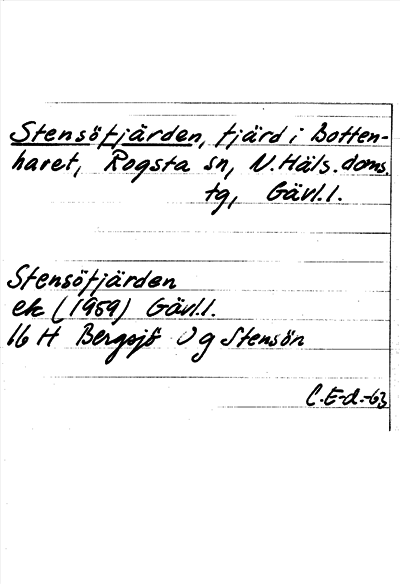 Stensöfjärden, fjärd i Botten-
havet, Rogsta sn, N. Häls. doms.
tg, Gävl. l.
Stensöfjärden
ek (1959) Gävl. l.
16 H Bergsjö O g Stensön
C. E-d. -63